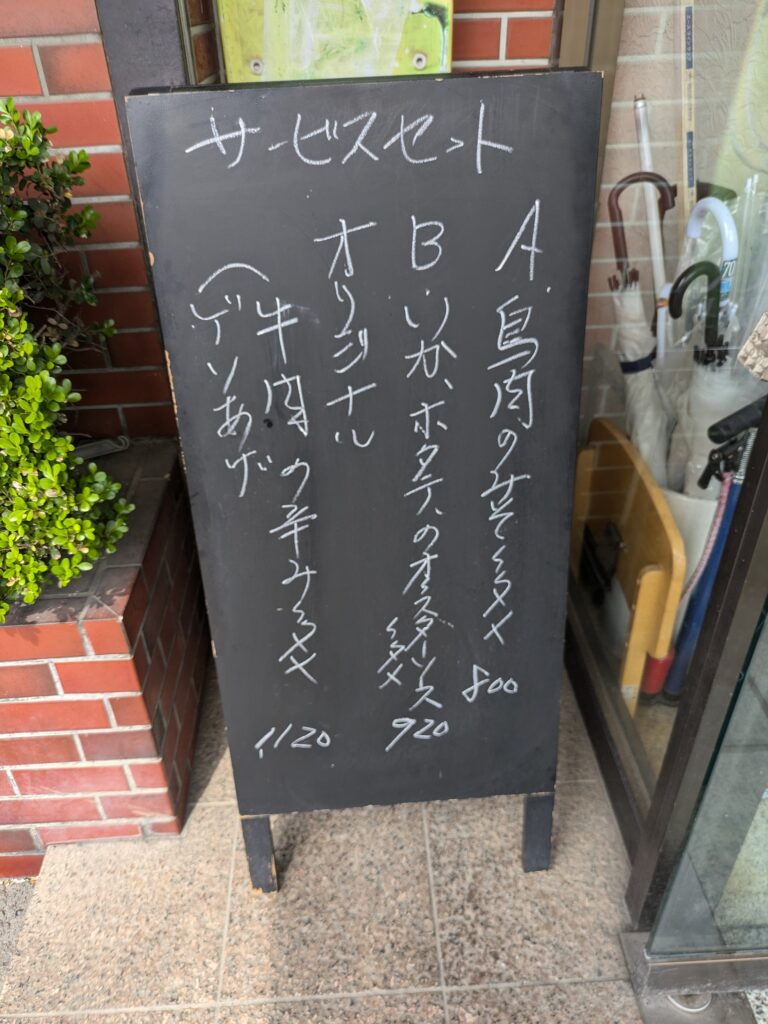 サービスセット
A. 鳥肉のみそ
800
B. いか、ホタテのオイスターソース
920
オリジナル
牛肉の辛み
1,120
(ゲソあげ
70